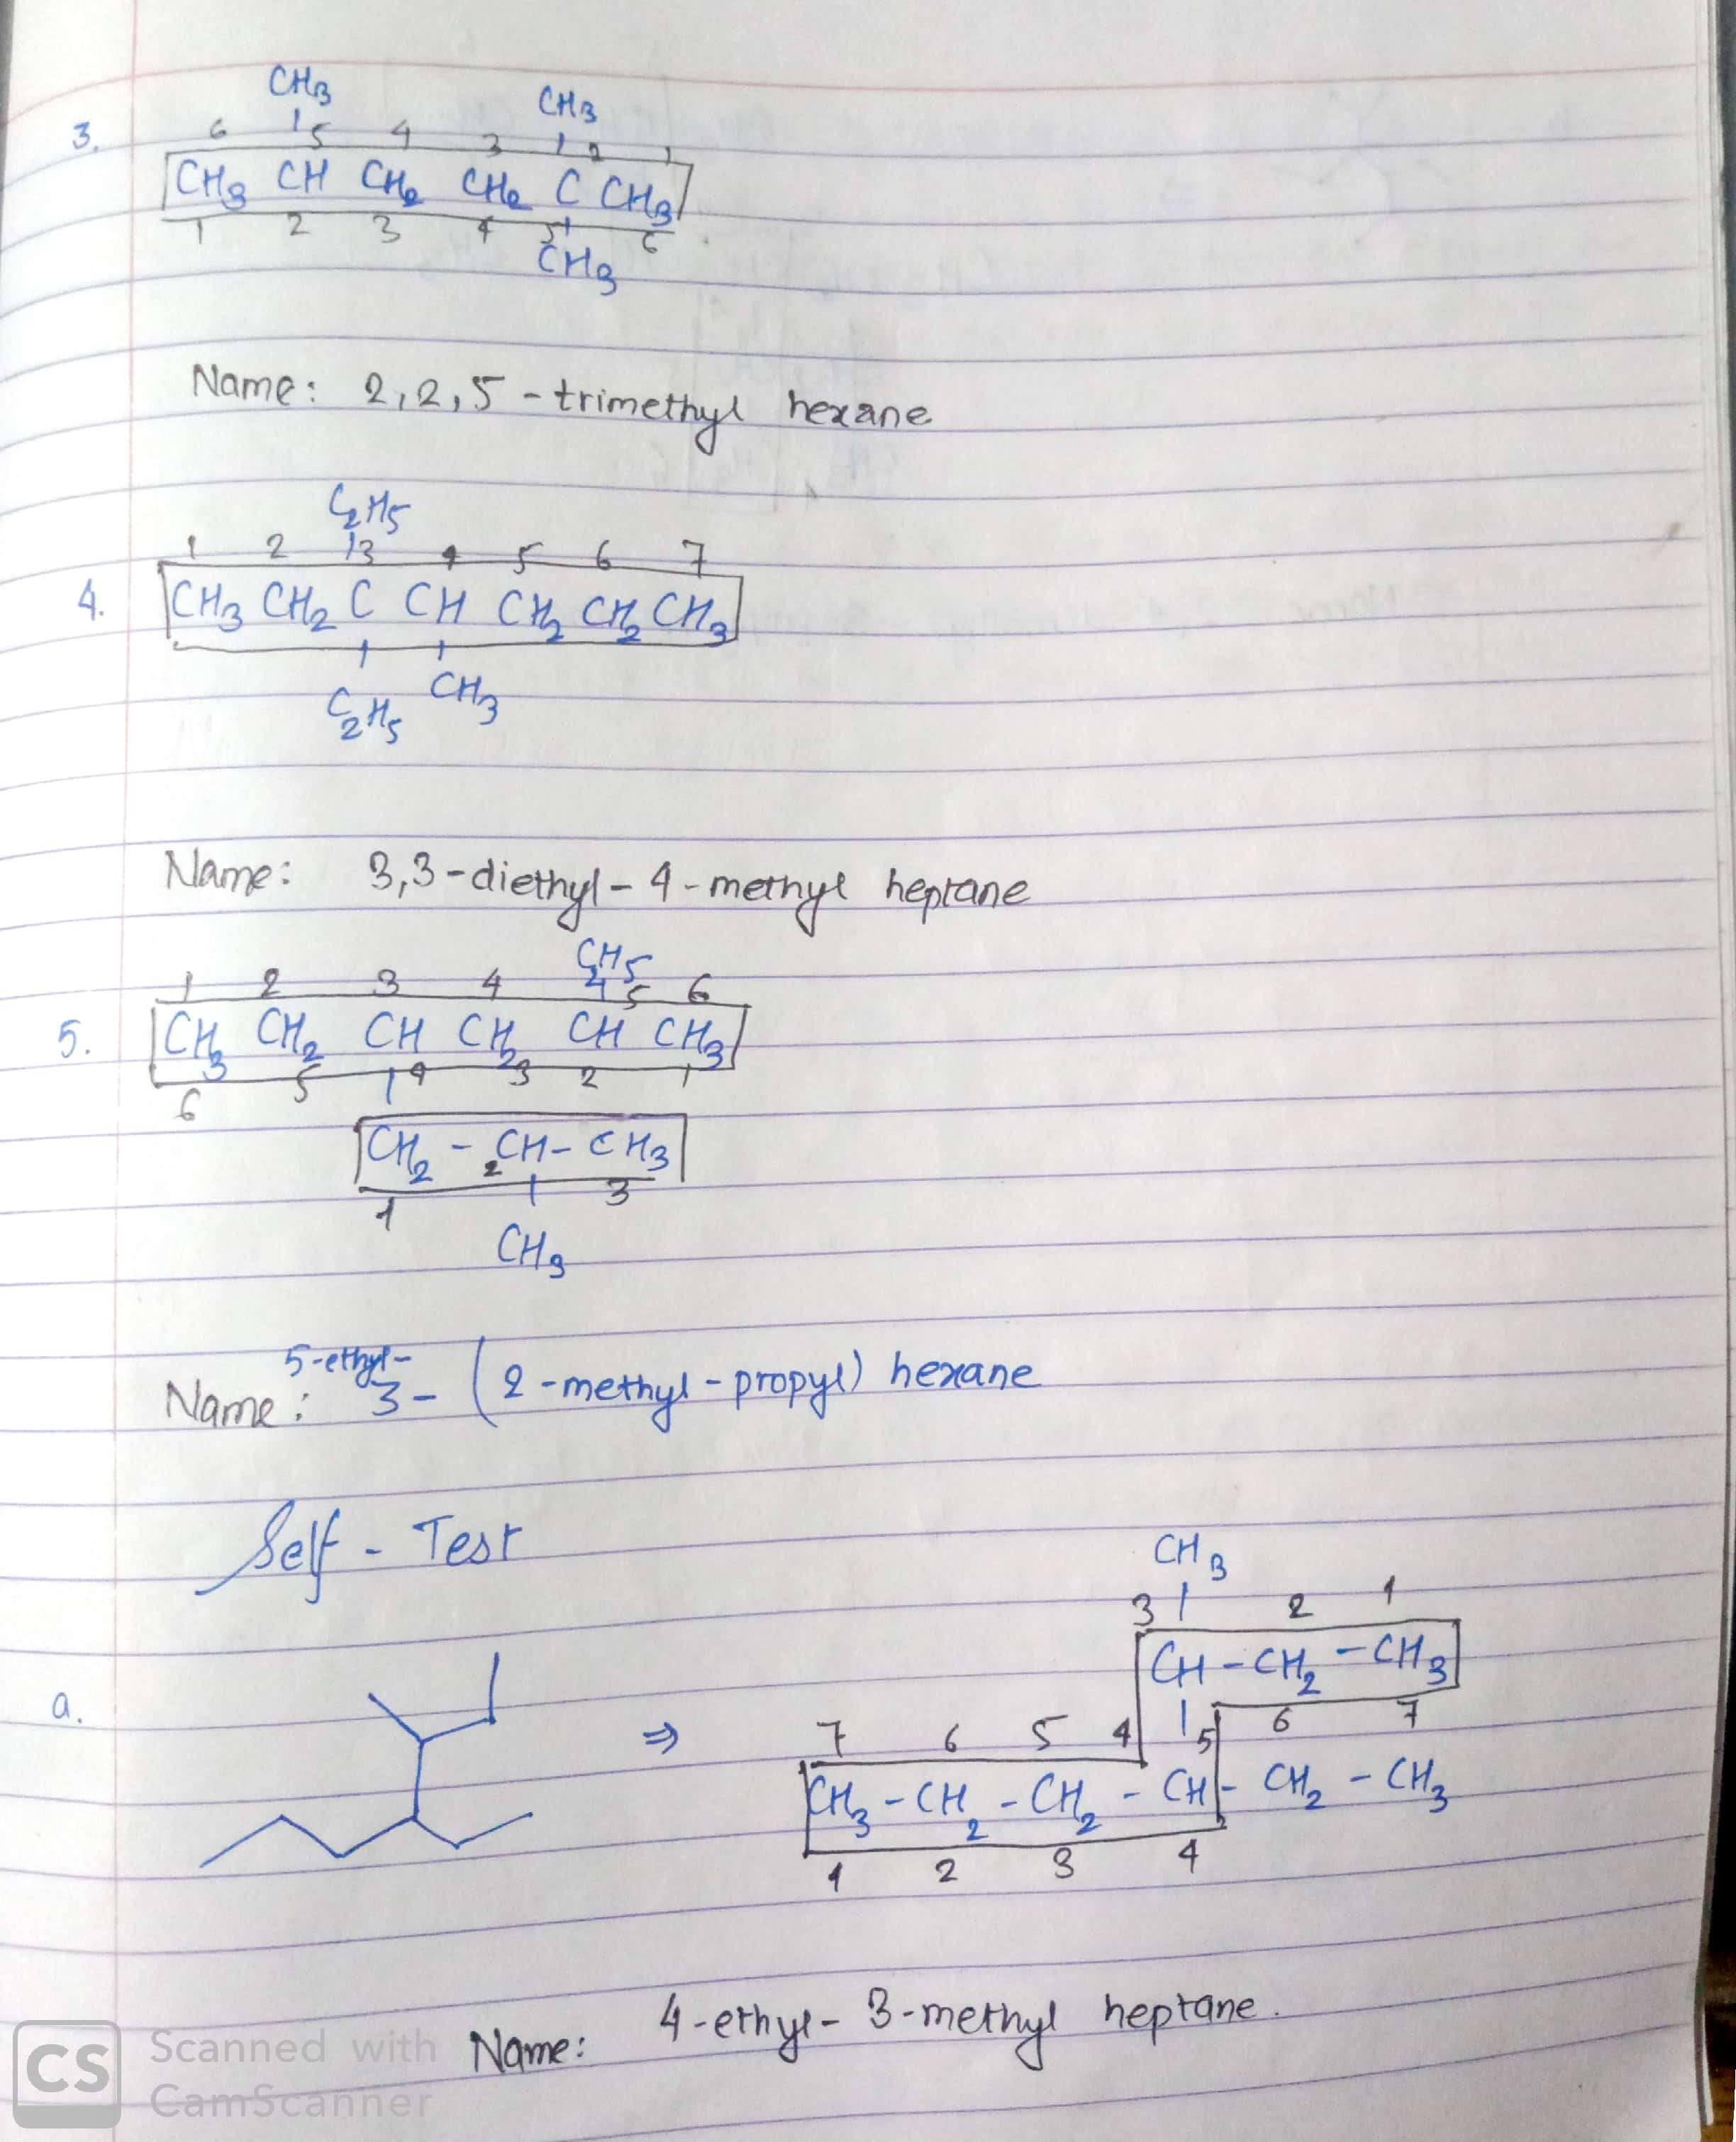 CH3 CH3
3. 6 5 4 3 2 1
CH3 CH CH2 CH2 C CH3
1 2 3 4 5 6
CH3
Name: 2,2,5 - trimethyl hexane
C2H5
1 2 3 4 5 6 7
4. CH3 CH2 C CH CH2 CH2 CH3
C2H5 CH3
Name: 3,3-diethyl - 4 - methyl heptane
C2H5
1 2 3 4 5 6
5. CH3 CH2 CH CH2 CH CH3
6 5 4 3 2 1
CH2 - CH - CH3
1 2 3
CH3
5-ethyl-
Name: 3- (2-methyl-propyl) hexane
Self - Test
CH3
3 2 1
CH - CH2 - CH3
a. ⇒ 7 6 5 4 5 6 7
CH3 - CH2 - CH2 - CH - CH2 - CH3
1 2 3 4
Name: 4-ethyl- 3-methyl heptane.
CS Scanned with
CamScanner